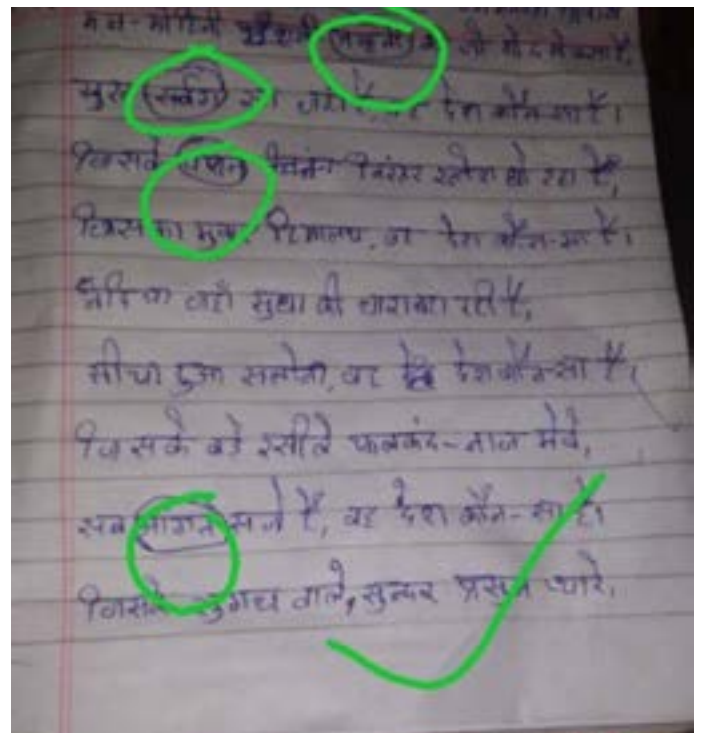 मन-मोहिनी प्रकृति की जो गोद में बसा है,
सुख जहाँ है, वह देश कौन-सा है।
जिसके निरंतर रतनेश धो रहा है,
जिसका मुकुट हिमालय, वह देश कौन-सा है।
नदियां जहाँ सुधा की धारा बहा रही है,
सींचा हुआ सलोना, वह देश कौन-सा है।
जिसके बड़े रसीले फल कंद-नाज मेवे,
सब सजे है, वह देश कौन-सा है।
जिसके सुगंध वाले, सुन्दर प्रसून प्यारे,